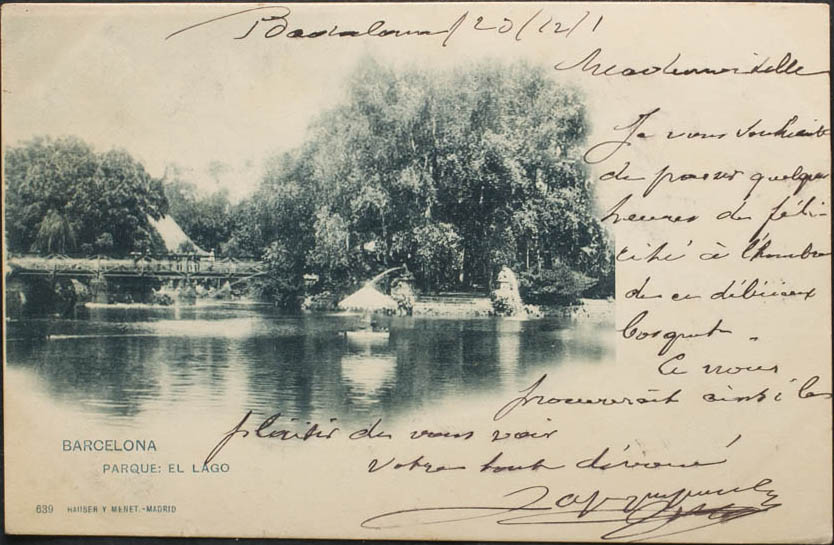 Barcelona, 20/12/1
Mademoiselle
Je vous souhaite
de passer quelques
heures de féli-
cité à l'hombre
de ce délicieux
bosquet.
Ce nous
procurerait ainsi le
plaisir de vous voir
Votre tout dévoué
BARCELONA
PARQUE: EL LAGO
639 HAUSER Y MENET.-MADRID